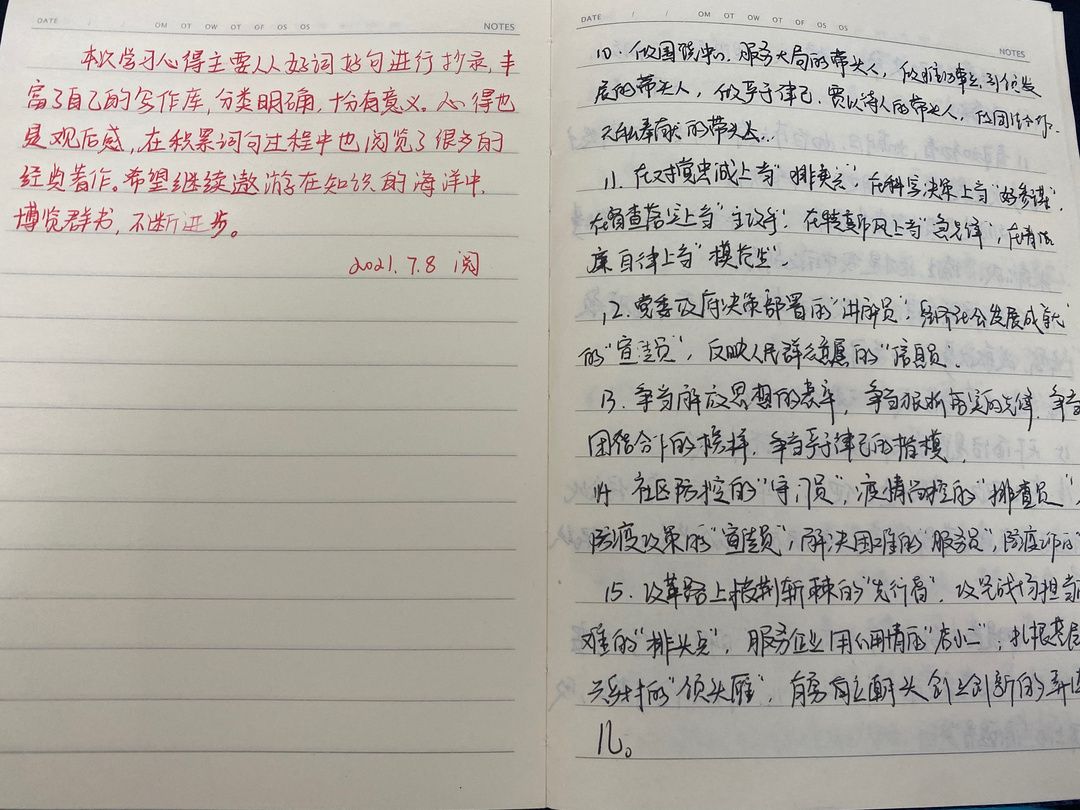 DATE / / OM OT OW OT OF OS OS NOTES
本次学习心得主要从好词好句进行抄录,丰
富了自己的写作库,分类明确,十分有意义。心得也
是观后感,在积累词句过程中也阅览了很多的
经典著作。希望继续遨游在知识的海洋中,
博览群书,不断进步。
2021.7.8 阅
DATE / / OM OT OW OT OF OS OS NOTES
10.做围绕中心、服务大局的带头人,做推动事业
展的带头人,做严于律己、宽以待人的带头人,做团结合作、
无私奉献的带头人.
11.在对党忠诚上当"排头兵",在科学决策上当"好参谋",
在督查落实上当"主攻手",在转变作风上当"急先锋",在清正
廉自律上当"模范生".
12.党委政府决策部署的"讲解员",经济社会发展成就
的"宣传员",反映人民群众意愿的"信息员.
13.争当解放思想的表率,争当狠抓落实的先锋,争当
团结合作的榜样,争当严于律己的楷模,
14 社区防控的"守门员",疫情防控的"排查员",
防疫政策的"宣传员",解决困难的"服务员",防疫
15.改革路上披荆斩棘的"先行者",攻坚战场担当
难的"排头兵",服务企业用心用情的"店小二",扎根基层
兴乡村的"领头雁",自立潮头创业创新的弄
儿。